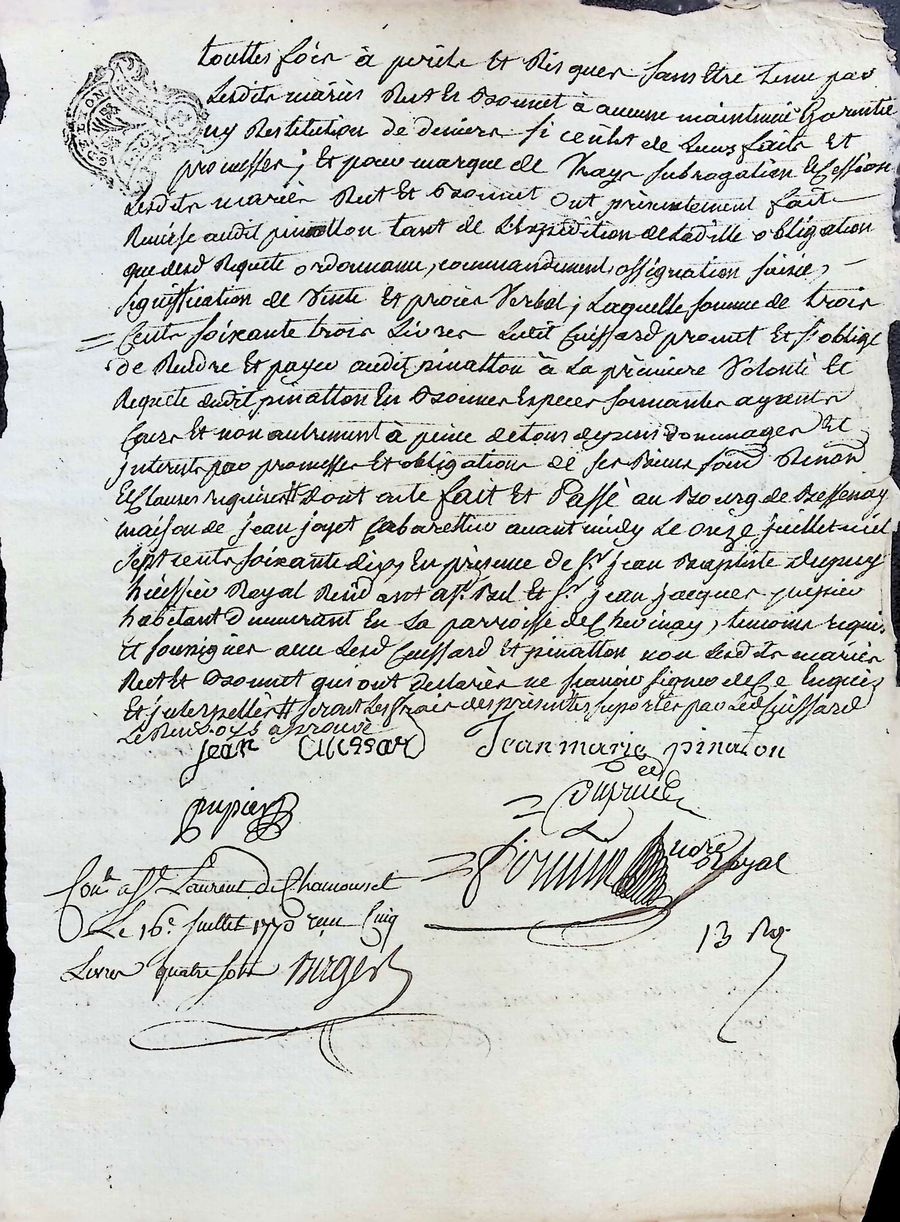 touttes fois à perils Et Risques sans Etre tenu par
Lesdits mariés Rut Et Bonnet à aucune maintenüe Garentie
ny Restitution de deniers si cenést de Leurs faits et
promesses; Et pour marque de Vraye subrogation Et Cession
Lesdits mariés Rut Et Bonnet ont présentement fait
Remise audit pinatton tant de L'Expédition de Ladille obligation
que desd Requete ordonnance, commandement, assignation saisie,
signiffication de Vente Et procés Verbal; Laquelle somme de trois
Cents soixante trois Livres Ledit Cuissard promet Et s'oblige
de Rendre Et payer audit pinatton à La prémiére Volonté Et
Requete dudit pinatton En Bonnes Especes sonnantes ayants
Cours Et non autrement à peine de tous depens dommages Et
interets par promesses Et obligations de ses Biens soumd Renond
Et Clauses requises dont acte fait Et Passé au Bourg de Bessenay
maison de jean joyet Cabarettier avant midy Le onze juillet mil
sept cents soixante dix, En présence de sr. jean Baptiste Dupuy
huissier Royal Resid ant a st. Bel Et sr. jean jacques pupier
habitant demeurant En La parroisse de Chevinay, temoins requis
Et soussignés avec Lesd Cuissard Et pinatton non Lesdits mariés
Rut Et Bonnet qui ont declarés ne sçavoir signer de Ce Enquis
Et interpellés seront Les frais des présentes suportés par Led Cuissard
Le Renvoys aprouvé
jean Cuissard Jean marie pinaton
pupier
nore Royal
Conlé a St. Laurent de Chamousset
Le 16e. Juillet 1770 reçu Cinq
Livres quatre sols
13